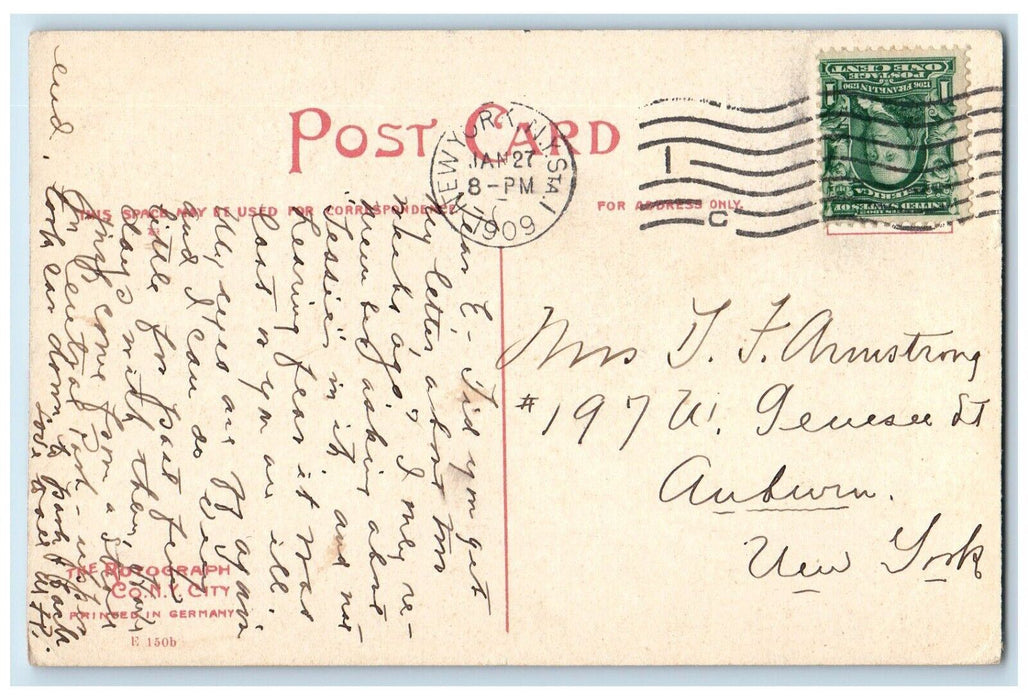 POST CARD
NEW YORK, N.Y. STA. I
JAN 27
8-PM
1909
I
C
UNITED STATES OF
AMERICA
1706 FRANKLIN 1790
POSTAGE
ONE CENT
1 1
THIS SPACE MAY BE USED FOR CORRESPONDENCE
FOR ADDRESS ONLY.
Dear E- Did you get
my letter about two
weeks ago? I only re-
member asking about
in it, and no
hearing fear it was
lost or you are ill.
My eyes are off again
and I can do very
little for past few
days with them,
just come from a
in Central Park -
took car down to park & back
end.
Love to all
Mrs T. F. Armstrong
#197 W. Genesee St
Auburn.
New York
THE ROTOGRAPH
CO. N.Y. CITY
PRINTED IN GERMANY
E 150b